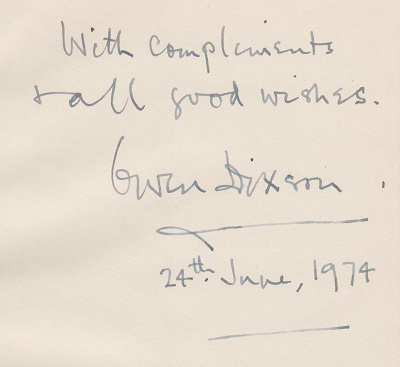 With compliments
& all good wishes.
Gwen Dixson.
24th June, 1974